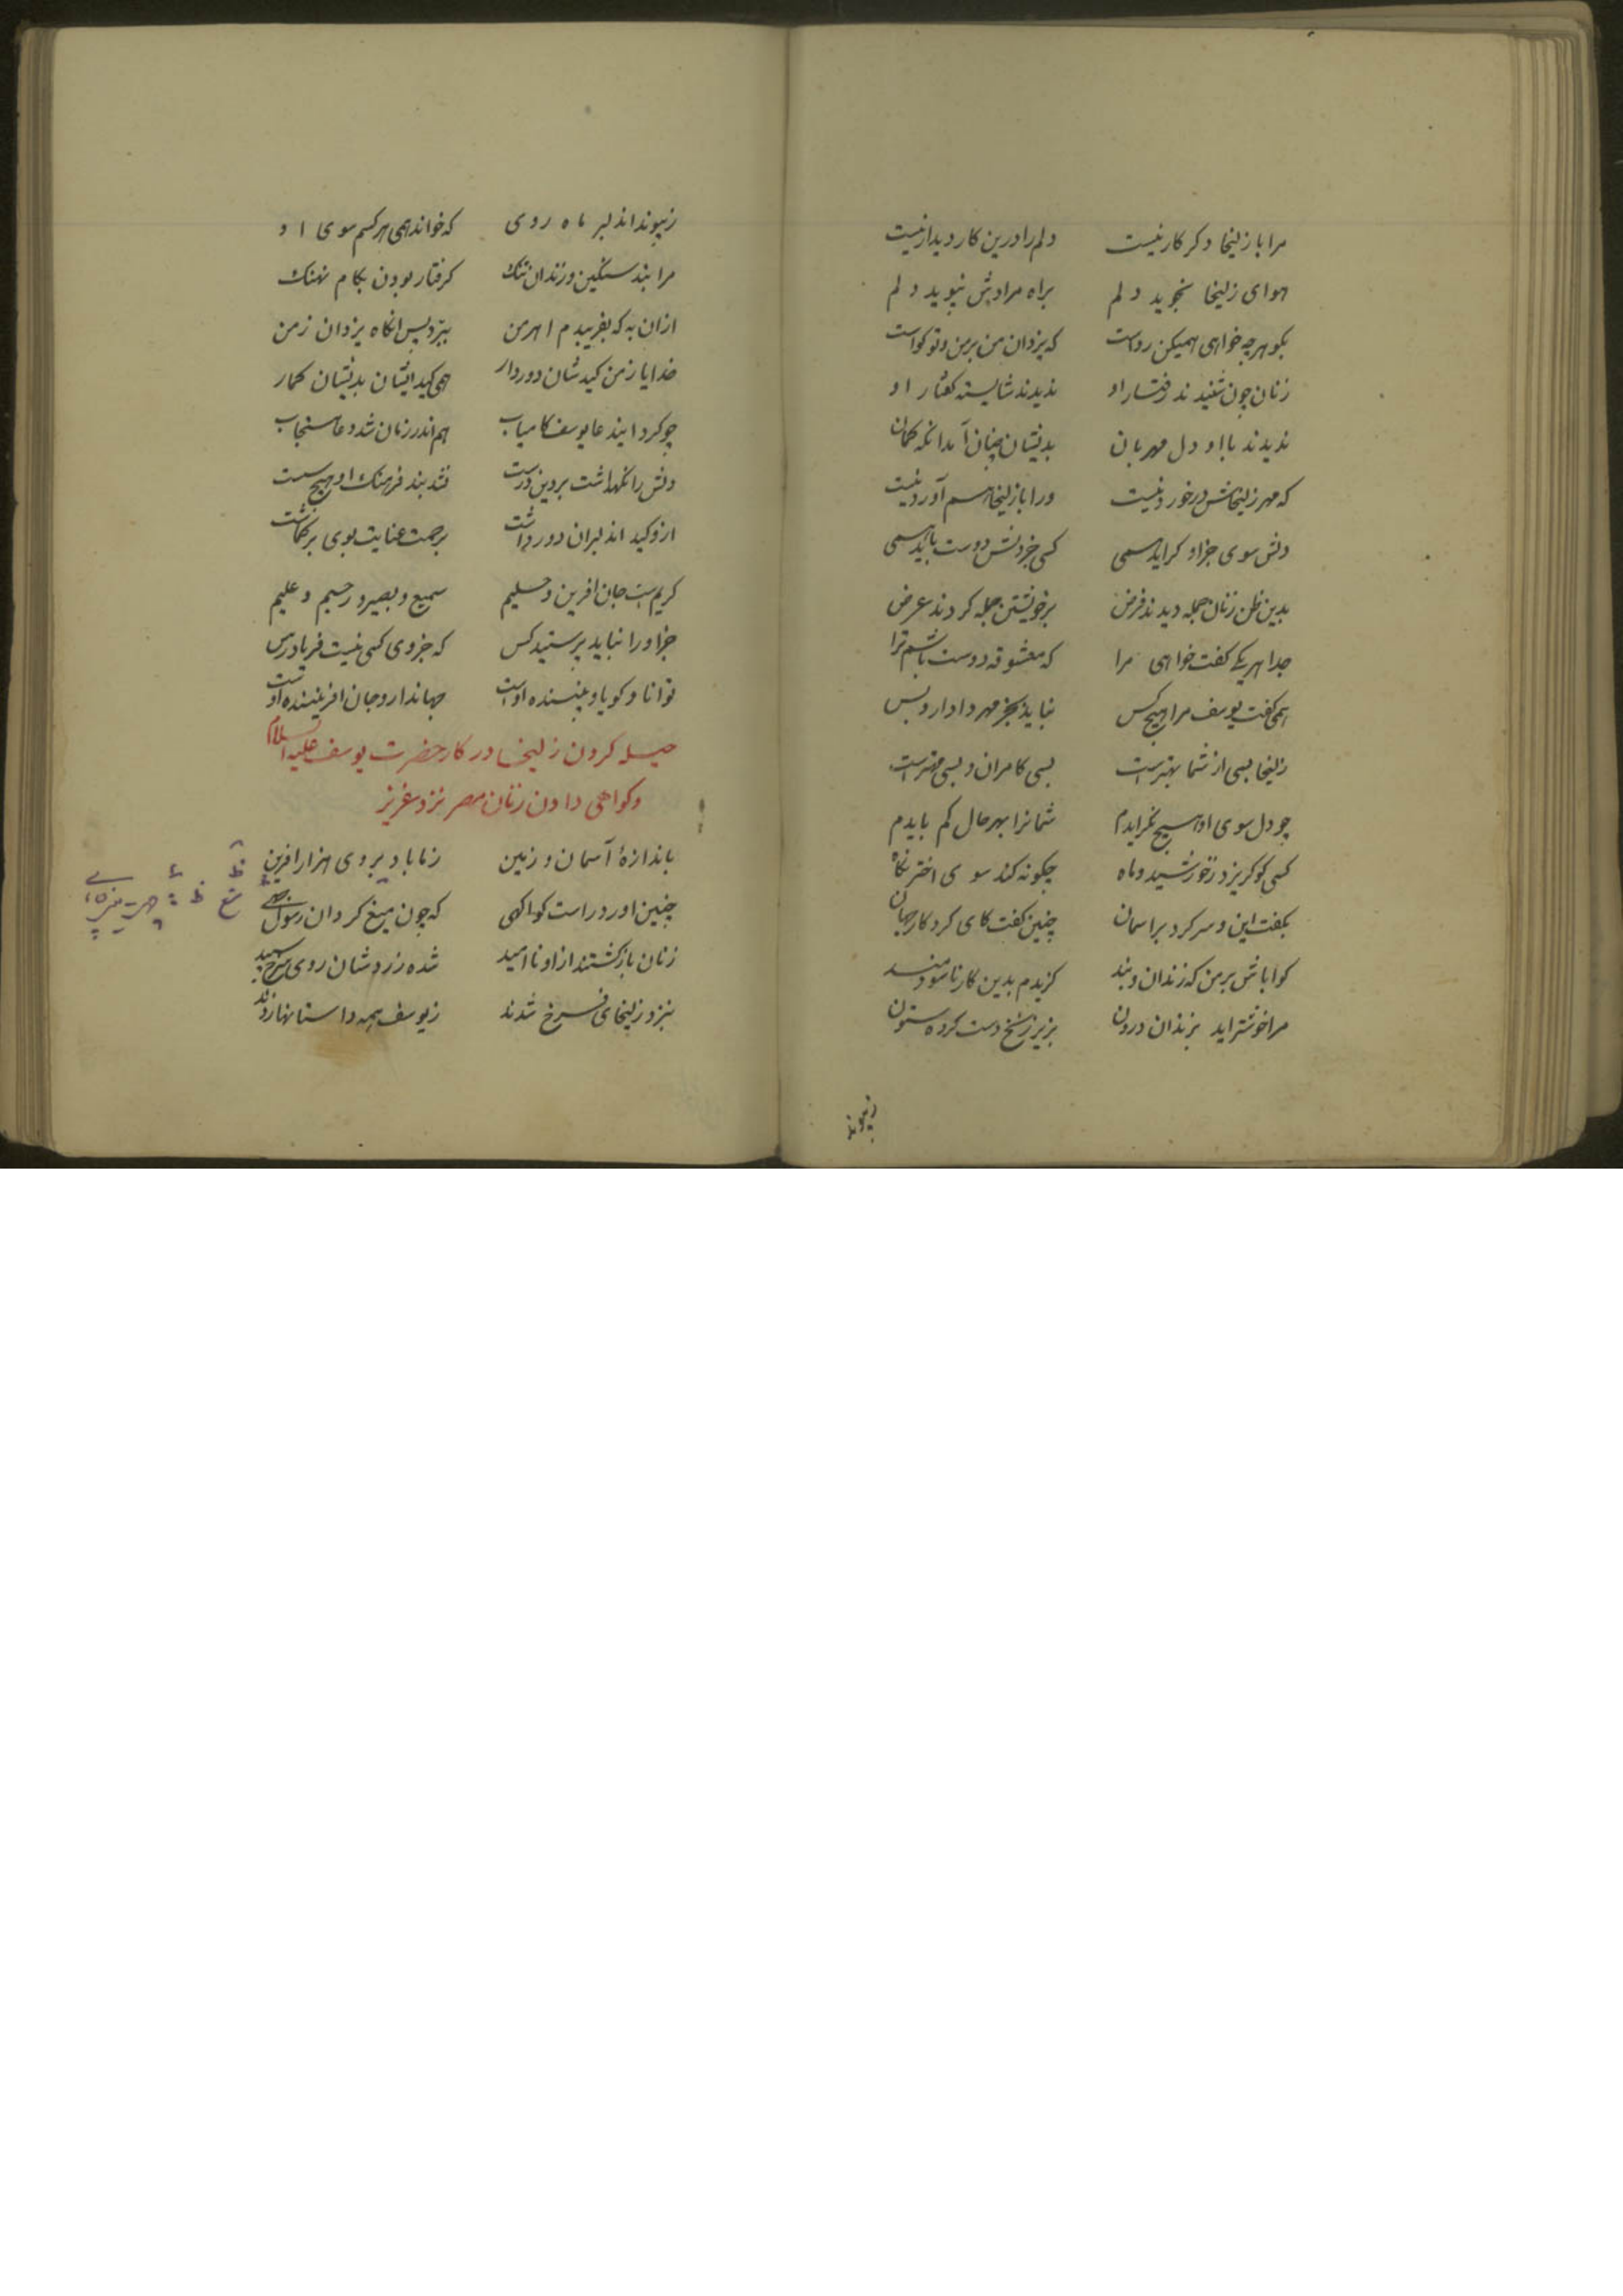 مرا با زلیخا دکر کار نیست دلم را درین کار دیدار نیست
هوای زلیخا نجوید دلم براه مرادش نپوید دلم
بکو هرچه خواهی همیکن رواست که یزدان من بر من و تو کواست
زنان چون شنیدند رفتار او ندیدند شایسته کفتار او
ندیدند با او دل مهربان بدیشان چنان آمد انکه کمان
که مهر زلیخاش درخورد نیست ورا با زلیخا هم آورد نیست
دلش سوی جز او کراید همی کسی جز دلش دوست باید همی
بدین ظن زنان جمله دیدند فرض برخویشتن جمله کردند عرض
جدا هر یکی کفت خواهی مرا که معشوقه دوست باشم ترا
همی کفت یوسف مرا هیچ کس نباید بجز مهر دادار و بس
زلیخا بسی از شما بهتر است بسی کامران و بسی مهتر است
چو دل سوی او هیچ نکرایدم شمانرا بهر حال کم بایدم
کسی کو کریزد ز خورشید و ماه چکونه کند سوی اختر نکاه
بکفت این و سر کرد بر اسمان چنین کفت کای کردکار جهان
کوا باش بر من که زندان و بند کزیدم بدین کار ناسودمند
مرا خوشتر اید بزندان درون بزیر زنخ دست کرده ستون
زپیوند
زپیوند اندلبر ماه روی که خواند همی هر کسم سوی او
مرا بند سنکین و زندان تنک کرفتار بودن بکام نهنک
ازان به که بفریبدم اهرمن ببرد پس انکاه یزدان زمن
خدایا زمن کید شان دور دار همی کید ایشان بدیشان کمار
چو کرد ایندعا یوسف کامیاب هم اندر زمان شد دعا مستجاب
دلش را نکهداشت بر دین درست نشد بند فرهنک او هیچ سست
ازو کید اندلبران دور داشت برحمت عنایت بوی بر کماشت
کریم است جان افرین و حلیم سمیع و بصیر و رحیم و علیم
جز او را نباید پرستید کس که جز وی کسی نیست فریادرس
توانا و کویا و بیننده اوست جهاندار و جان افریننده اوست
حیله کردن زلیخا در کار حضرت یوسف علیه السلام
وکواهی دادن زنان مصر نزد عزیز
باندازهٔ آسمان و زمین زما باد بر وی هزار افرین
چنین اورد راست کو اکهی که چون میغ کردان رسول
زنان باز کشتند ازو ناامید شده زرد شان روی سرخ سپید
بنزد زلیخای فرخ شدند زیوسف همه داستانها زدند